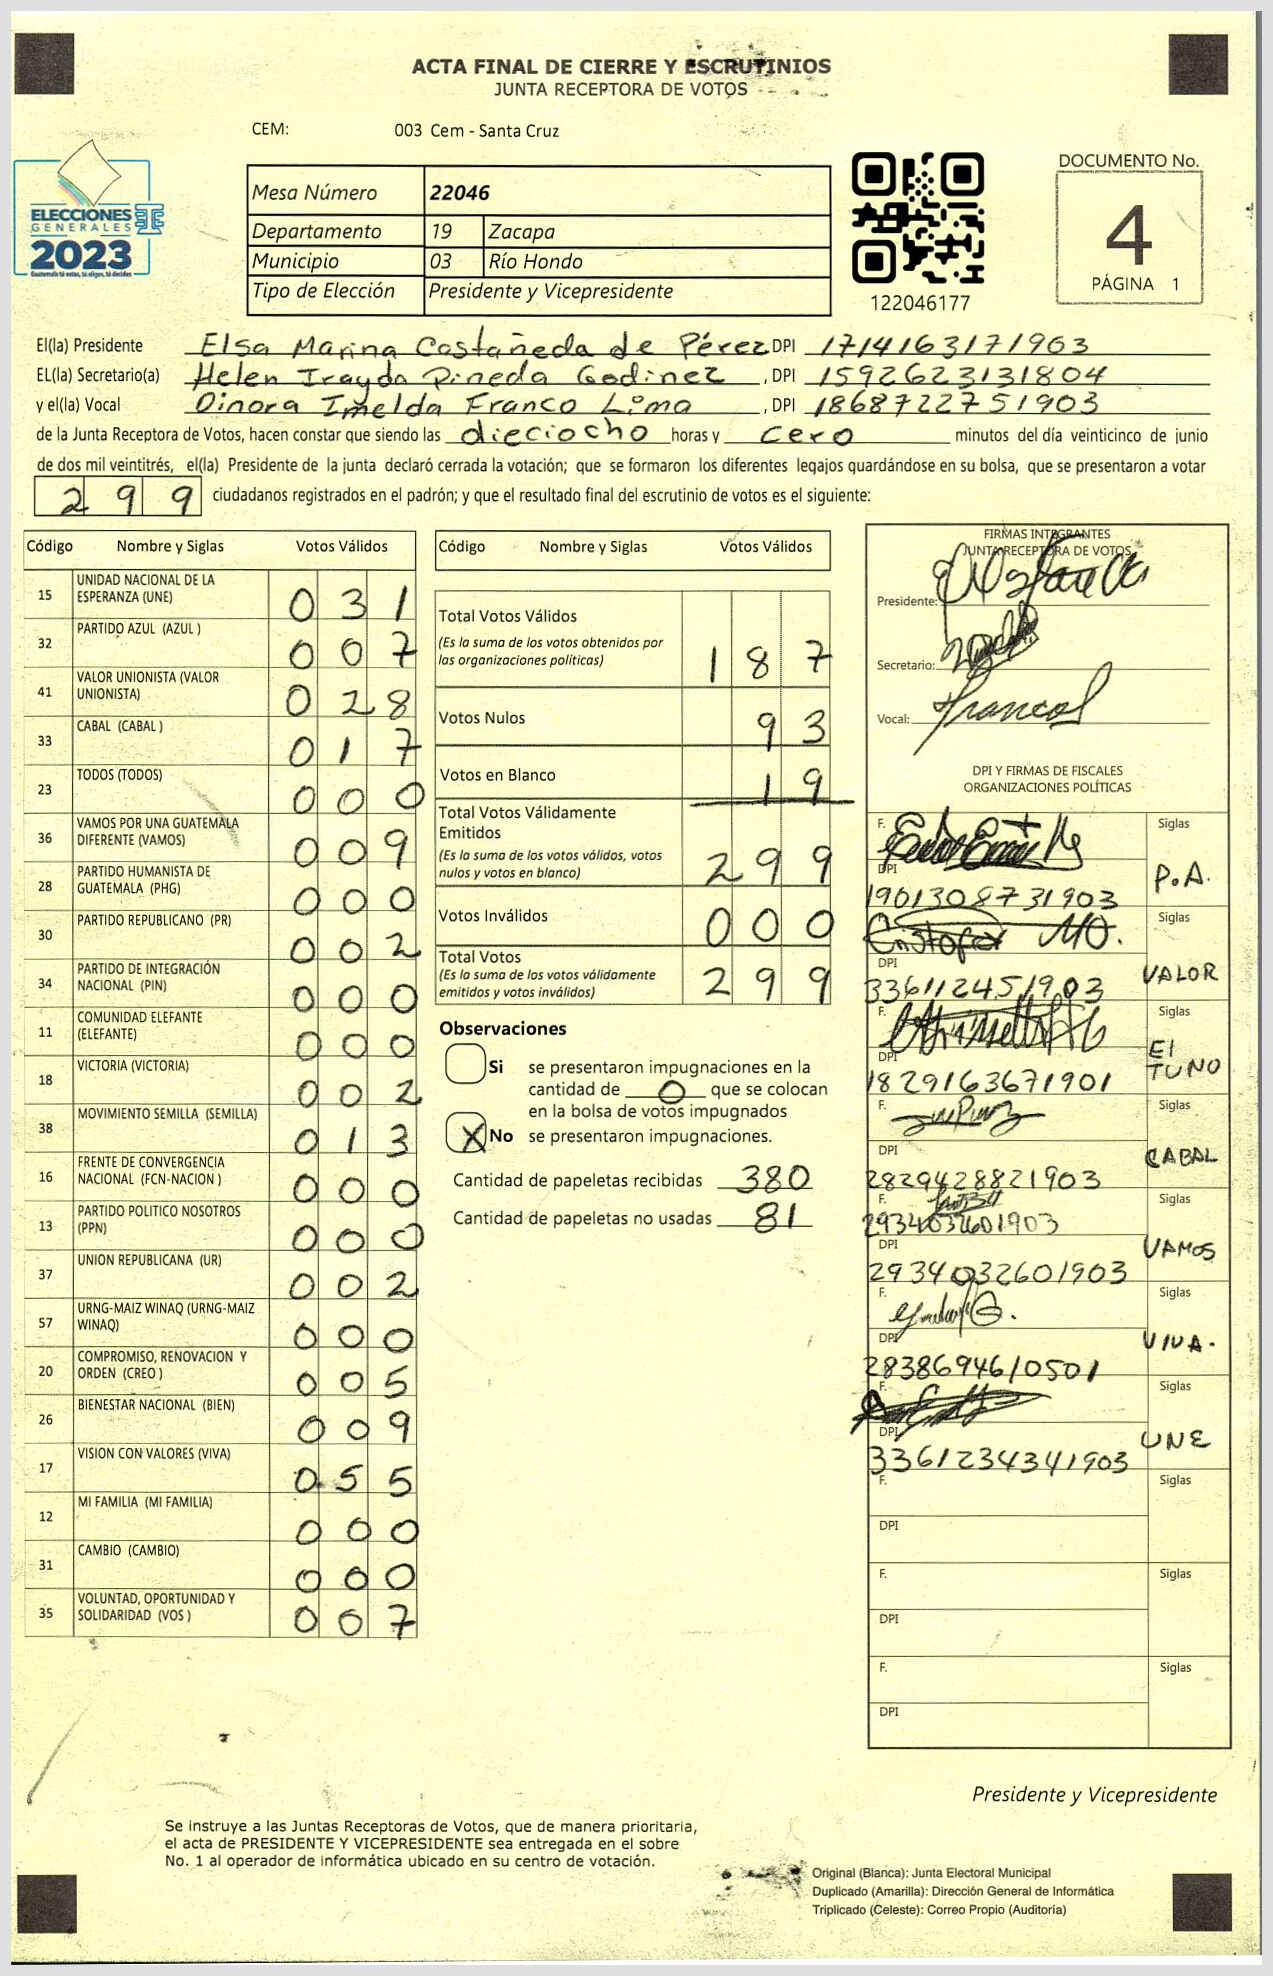 ACTA FINAL DE CIERRE Y ESCRUTINIOS
JUNTA RECEPTORA DE VOTOS
CEM: 003 Cem - Santa Cruz
ELECCIONES
GENERALES
2023
Guatemala tú votas, tú eliges, tú decides
Mesa Número 22046
Departamento 19 Zacapa
Municipio 03 Río Hondo
Tipo de Elección Presidente y Vicepresidente
122046177
DOCUMENTO No.
4
PÁGINA 1
El(la) Presidente Elsa Marina Castañeda de Pérez DPI 1714163171903
EL(la) Secretario(a) Helen Irayda Pineda Godinez , DPI 1592623131804
y el(la) Vocal Dinora Imelda Franco Lima , DPI 1868722751903
de la Junta Receptora de Votos, hacen constar que siendo las dieciocho horas y cero minutos del día veinticinco de junio
de dos mil veintitrés, el(la) Presidente de la junta declaró cerrada la votación; que se formaron los diferentes legajos guardándose en su bolsa, que se presentaron a votar
299 ciudadanos registrados en el padrón; y que el resultado final del escrutinio de votos es el siguiente:
Código Nombre y Siglas Votos Válidos
15 UNIDAD NACIONAL DE LA ESPERANZA (UNE) 031
32 PARTIDO AZUL (AZUL ) 007
41 VALOR UNIONISTA (VALOR UNIONISTA) 028
33 CABAL (CABAL ) 017
23 TODOS (TODOS) 000
36 VAMOS POR UNA GUATEMALA DIFERENTE (VAMOS) 009
28 PARTIDO HUMANISTA DE GUATEMALA (PHG) 000
30 PARTIDO REPUBLICANO (PR) 002
34 PARTIDO DE INTEGRACIÓN NACIONAL (PIN) 000
11 COMUNIDAD ELEFANTE (ELEFANTE) 000
18 VICTORIA (VICTORIA) 002
38 MOVIMIENTO SEMILLA (SEMILLA) 013
16 FRENTE DE CONVERGENCIA NACIONAL (FCN-NACION ) 000
13 PARTIDO POLITICO NOSOTROS (PPN) 000
37 UNION REPUBLICANA (UR) 002
57 URNG-MAIZ WINAQ (URNG-MAIZ WINAQ) 000
20 COMPROMISO, RENOVACION Y ORDEN (CREO ) 005
26 BIENESTAR NACIONAL (BIEN) 009
17 VISION CON VALORES (VIVA) 055
12 MI FAMILIA (MI FAMILIA) 000
31 CAMBIO (CAMBIO) 000
35 VOLUNTAD, OPORTUNIDAD Y SOLIDARIDAD (VOS ) 007
Código Nombre y Siglas Votos Válidos
Total Votos Válidos
(Es la suma de los votos obtenidos por
las organizaciones políticas) 187
Votos Nulos 93
Votos en Blanco 19
Total Votos Válidamente
Emitidos
(Es la suma de los votos válidos, votos
nulos y votos en blanco) 299
Votos Inválidos 000
Total Votos
(Es la suma de los votos válidamente
emitidos y votos inválidos) 299
Observaciones
Si se presentaron impugnaciones en la
cantidad de 0 que se colocan
en la bolsa de votos impugnados
X No se presentaron impugnaciones.
Cantidad de papeletas recibidas 380
Cantidad de papeletas no usadas 81
FIRMAS INTEGRANTES
JUNTA RECEPTORA DE VOTOS
Presidente:
Secretario:
Vocal: Franco
DPI Y FIRMAS DE FISCALES
ORGANIZACIONES POLÍTICAS
F. Siglas
DPI 1901308731903 P.A.
F. Siglas
DPI 336112451903 VALOR
F. Siglas
DPI 1829163671901 El TUNO
F. Siglas
DPI 2829428821903 CABAL
F. Siglas
2934032601903
DPI 2934032601903 VAMOS
F. Siglas
DPI 2838694610501 VIVA.
F. Siglas
DPI 3361234341903 UNE
F. Siglas
DPI
F. Siglas
DPI
F. Siglas
DPI
Presidente y Vicepresidente
Se instruye a las Juntas Receptoras de Votos, que de manera prioritaria,
el acta de PRESIDENTE Y VICEPRESIDENTE sea entregada en el sobre
No. 1 al operador de informática ubicado en su centro de votación.
Original (Blanca): Junta Electoral Municipal
Duplicado (Amarilla): Dirección General de Informática
Triplicado (Celeste): Correo Propio (Auditoría)